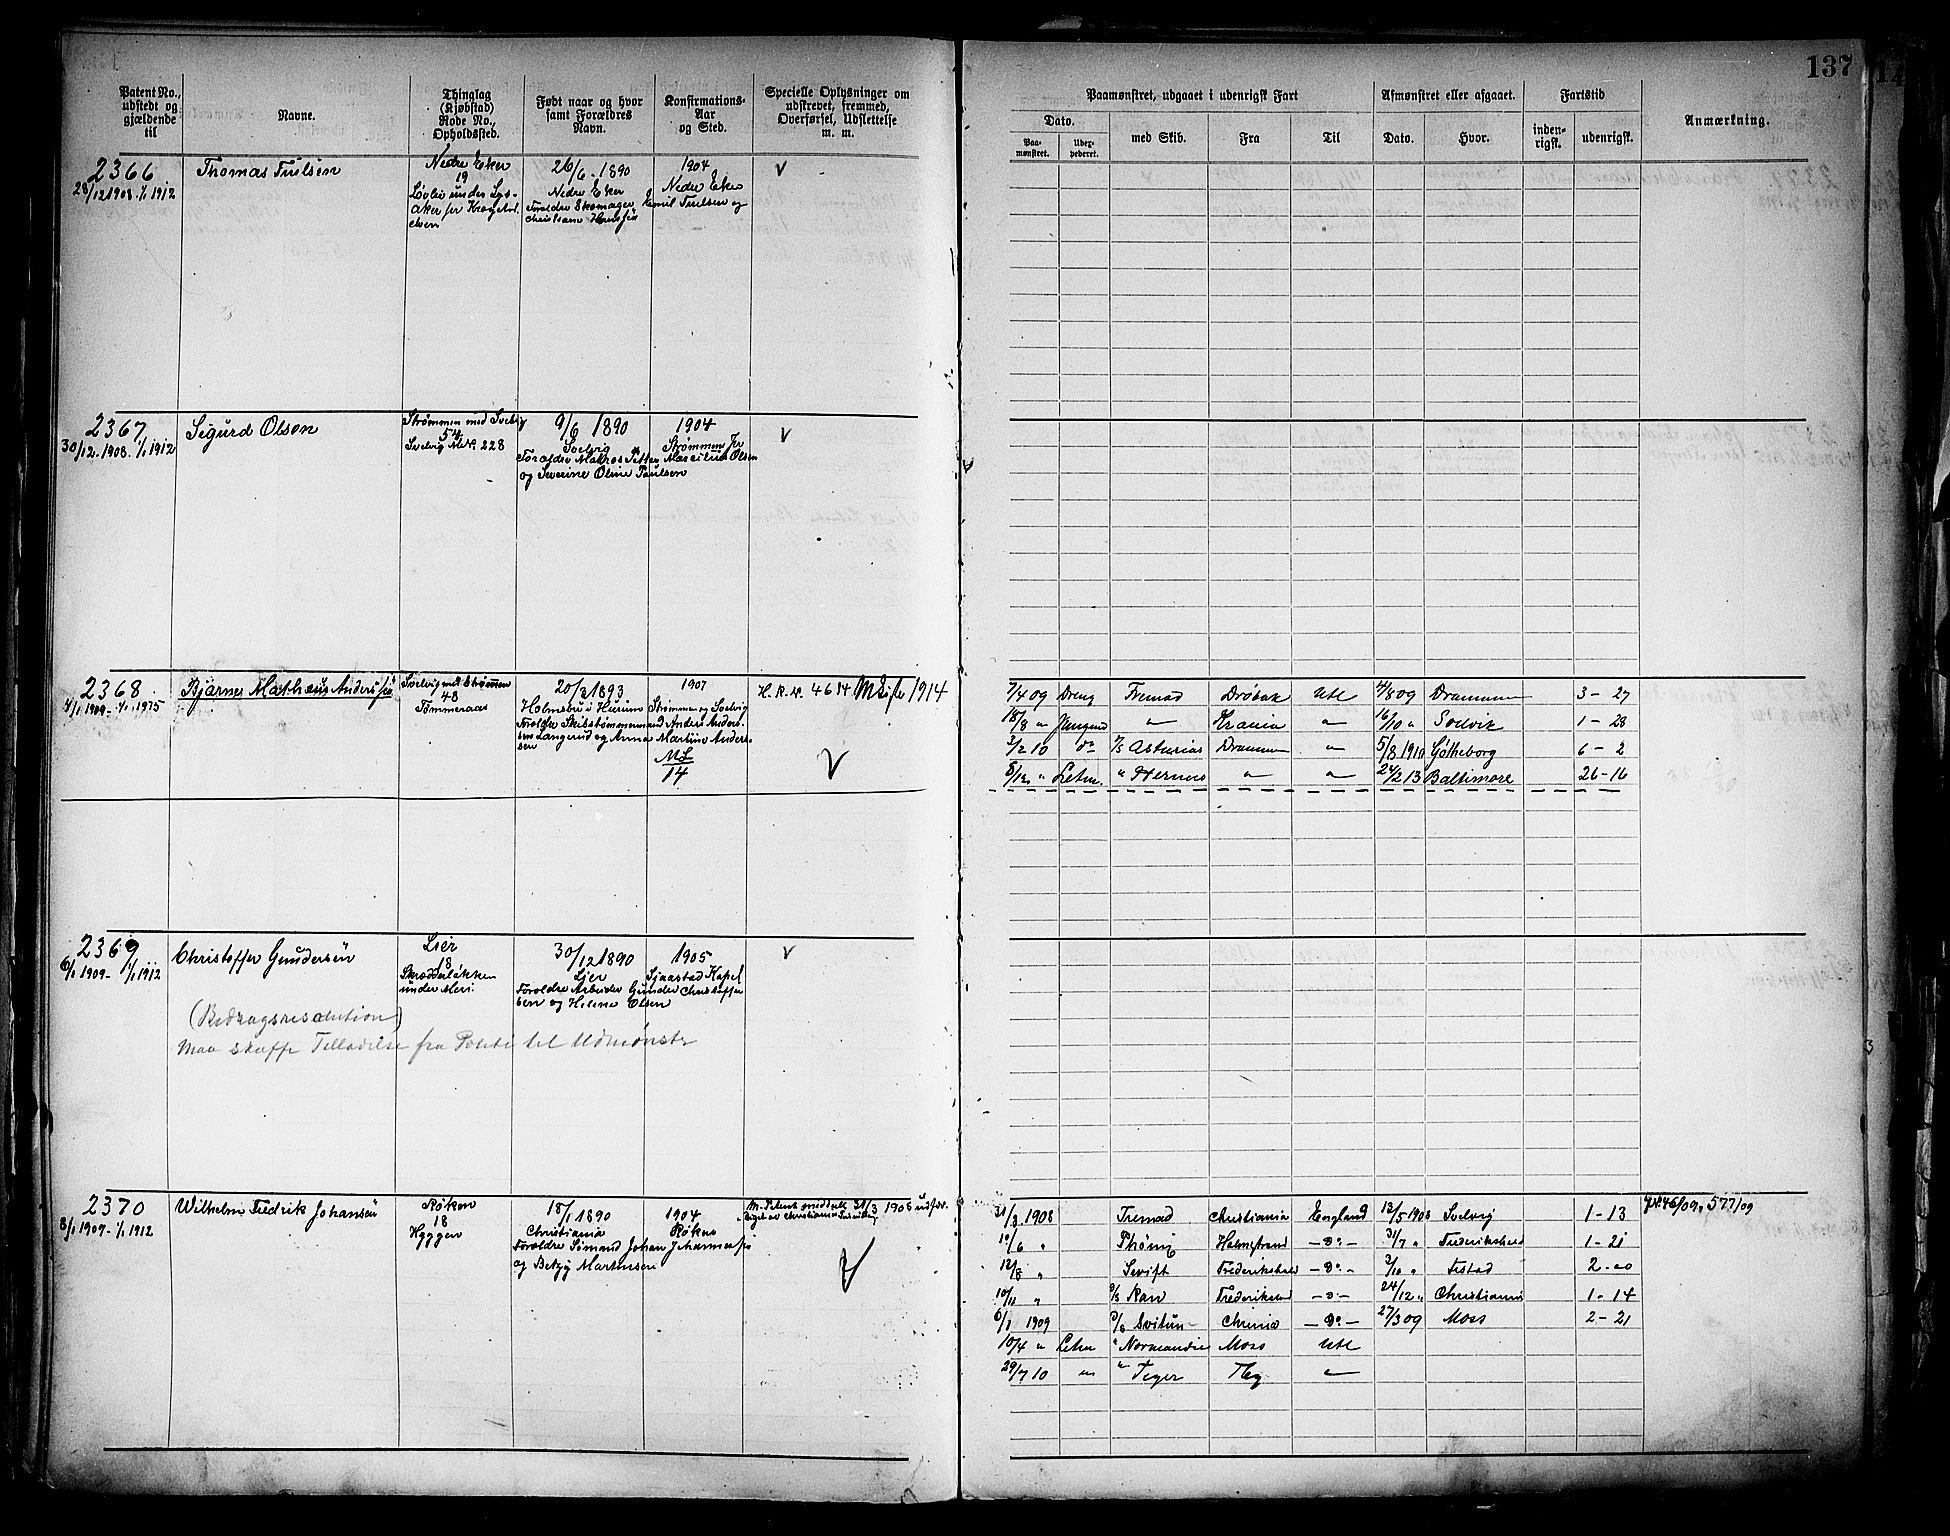 137
Patent No., udstedt og gjældende til
Navne.
Thinglag (Kjøbstad) Rode No., Opholdssted.
Født naar og hvor samt Forældres Navn.
Konfirmations- Aar og Sted.
Specielle Oplysninger om udstrevet, fremmed, Overførsel, Udslettelse m. m.
Paamønstret, udgaaet i udenrigsk Fart
Afmønstret eller afgaaet.
Fartstid
Anmærkning.
Dato.
med Skib.
Fra
Til
Dato.
Hvor.
inden- rigsk.
udenrigsk.
Paa- mønstret.
2366
28/12 1908. 1/1 1912
Thomas Truelsen
Nedre Eker
19
26/6 - 1890
Nedre Eker
Forældre Skomager Emil Truelsen og
1904
Nedre Eker
V
2367
30/12. 1908. 1/1 1912
Sigurd Olsen
Strømmen med Svelvig
54
Svelvig Mtr. 228
9/6 1890
Svelvig
Forældre Matros Petter Marcilius Olsen
og Severine Oline Paulsen
1904
Strømmen
V
2368
4/1 1909 - 1/1 1915
Bjarne Mathæus Anderssen
Svelvig med Strømmen
48
Tømmeraas
20/3 1893
Holmsbu i Hurum
Forældre Skibstømmermand Anders Anders-
sen Langerud og Anna Martine Anders-
sen
1907
Strømmen og Svelvig
ML/14
H. R. No. 4614
1914
V
7/4 09 Dreng Fremad Drøbak Udl 4/8 09 Drammen 3 - 27
18/8 " Jungmd " Krania " 16/10 " Soelvik 1 - 28
2/2 10 do D/S Asturias Drammen " 5/8 1910 Gøtheborg 6 - 2
8/12 " Letm. " Hernes " " 24/2 13 Baltimore 26 - 16
2369
6/1 1909 - 1/1 1912
Christoffer Gundersen
Lier
18
Skrædderløkken
under Meri
30/12 1890
Lier
Forældre Arbeider Gunder Christoffer
sen og Helene Olsen
1905
Sjaastad Kapel
V
(Bidragsresolution)
Maa skaffe Tilladelse fra Politi til Udmønstr
2370
8/1 1909 - 1/1 1912
Wilhelm Fredrik Johansen
Røken
18
Hyggen
18/1 1890
Christiania
Forældre Sømand Johan Johannessen
og Betzy Martinsen
1904
Røken
V
31/3 1908 Fremad Christiania England 12/5 1908 Svelvig 1 - 13
10/6 " Phønix Holmestrand - do - 31/7 " Frederikshald 1 - 21
12/8 " Swift Frederikshald - do - 2/10 " Tistad 2 - 20
10/11 " D/S Ran Frederikstad - do - 24/12 " Christiania 1 - 14
6/1 1909 D/S Svitun Chrania - do - 27/3 09 Moss 2 - 21
10/4 " Letm " Normandie Moss Udl
29/7 10 " " Teger Tbg "
46/09, 577/09